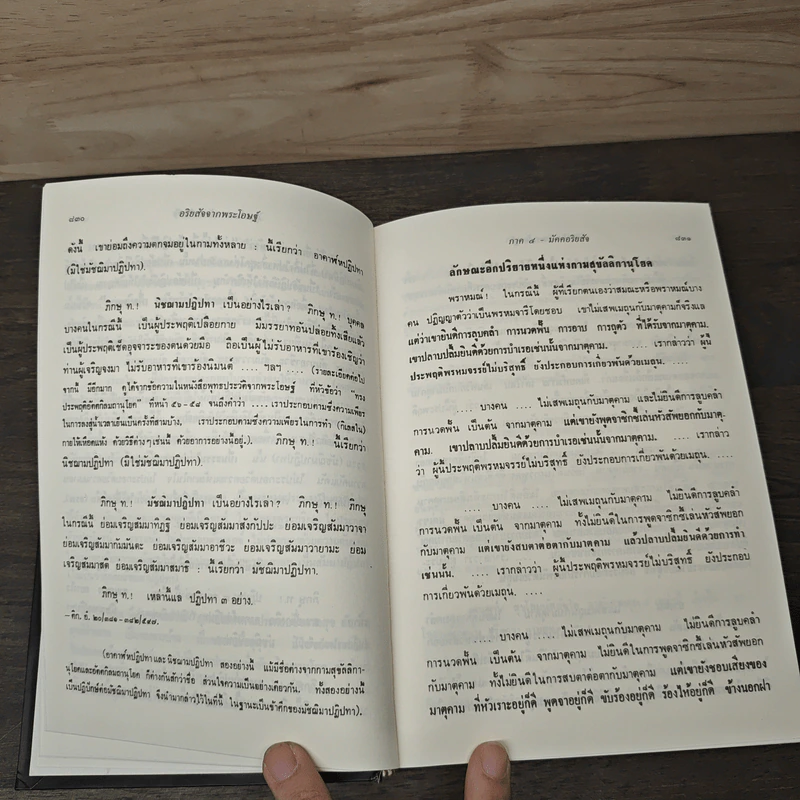 ๘๓๐
อริยสัจจากพระโอษฐ์
ดังนี้ เขาย่อมถึงความตกจมอยู่ในกามทั้งหลาย : นี้เรียกว่า อาคาฬ๎หปฏิปทา
(มิใช่มัชฌิมาปฏิปทา).
ภิกษุ ท.! นิชฌามปฏิปทา เป็นอย่างไรเล่า? ภิกษุ ท.! บุคคล
บางคนในกรณีนี้ เป็นผู้ประพฤติเปลือยกาย มีมรรยาทอันปล่อยทิ้งเสียแล้ว
เป็นผู้ประพฤติเช็ดอุจจาระของตนด้วยมือ ถือเป็นผู้ไม่รับอาหารที่เขาร้องเชิญว่า
ท่านผู้เจริญจงมา ไม่รับอาหารที่เขาร้องนิมนต์ .... ฯลฯ .... (รายละเอียดต่อไป
จากนี้ มีอีกมาก ดูได้จากข้อความในหนังสือพุทธประวัติจากพระโอษฐ์ ที่หัวข้อว่า "ทรง
ประพฤติอัตตกิลมถานุโยค" ที่หน้า ๕๖-๕๘ จนถึงคำว่า ....เราประกอบตามซึ่งความเพียร
ในการลงสู่น้ำเวลาเย็นเป็นครั้งที่สามบ้าง, เราประกอบตามซึ่งความเพียรในการทำ (กิเลสใน)
กายให้เหือดแห้ง ด้วยวิธีต่างๆเช่นนี้ ด้วยอาการอย่างนี้อยู่.). ภิกษุ ท.! นี้เรียกว่า
นิชฌามปฏิปทา (มิใช่มัชฌิมาปฏิปทา).
ภิกษุ ท.! มัชฌิมาปฏิปทา เป็นอย่างไรเล่า? ภิกษุ ท.! ภิกษุ
ในกรณีนี้ ย่อมเจริญสัมมาทิฏฐิ ย่อมเจริญสัมมาสังกัปปะ ย่อมเจริญสัมมาวาจา
ย่อมเจริญสัมมากัมมันตะ ย่อมเจริญสัมมาอาชีวะ ย่อมเจริญสัมมาวายามะ ย่อม
เจริญสัมมาสติ ย่อมเจริญสัมมาสมาธิ : นี้เรียกว่า มัชฌิมาปฏิปทา.
ภิกษุ ท.! เหล่านี้แล ปฏิปทา ๓ อย่าง.
- ติก. อํ. ๒๐/๓๘๑-๓๘๒/๕๙๗.
(อาคาฬ๎หปฏิปทาและนิชฌามปฏิปทา สองอย่างนี้ แม้มีชื่อต่างจากกามสุขัลลิกา-
นุโยคและอัตตกิลมถานุโยค ก็ต่างกันสักว่าชื่อ ส่วนใจความเป็นอย่างเดียวกัน. ทั้งสองอย่างนี้
เป็นปฏิปักษ์ต่อมัชฌิมาปฏิปทา จึงนำมากล่าวไว้ในที่นี้ ในฐานะเป็นข้าศึกของมัชฌิมาปฏิปทา).
ภาค ๔ - มัคคอริยสัจ
๘๓๑
ลักษณะอีกปริยายหนึ่งแห่งกามสุขัลลิกานุโยค
พราหมณ์! ในกรณีนี้ ผู้ที่เรียกตนเองว่าสมณะหรือพราหมณ์บาง
คน ปฏิญญาตัวว่าเป็นพรหมจารีโดยชอบ เขาไม่เสพเมถุนกับมาตุคามก็จริงแล
แต่ว่าเขายินดีการลูบคลำ การนวดฟั้น การอาบ การถูตัว ที่ได้รับจากมาตุคาม.
เขาปลาบปลื้มยินดีด้วยการบำเรอเช่นนั้นจากมาตุคาม. .... เรากล่าวว่า ผู้นี้
ประพฤติพรหมจรรย์ไม่บริสุทธิ์ ยังประกอบการเกี่ยวพันด้วยเมถุน. ....
.... บางคน ....ไม่เสพเมถุนกับมาตุคาม และไม่ยินดีการลูบคลำ
การนวดฟั้น เป็นต้น จากมาตุคาม แต่เขายังพูดจาซิกซี้เล่นหัวสัพยอกกับมาตุ-
คาม. เขาปลาบปลื้มยินดีด้วยการบำเรอเช่นนั้นจากมาตุคาม. .... เรากล่าว
ว่า ผู้นี้ประพฤติพรหมจรรย์ไม่บริสุทธิ์ ยังประกอบการเกี่ยวพันด้วยเมถุน. ....
.... บางคน ....ไม่เสพเมถุนกับมาตุคาม ไม่ยินดีการลูบคลำ
การนวดฟั้น เป็นต้น จากมาตุคาม ทั้งไม่ยินดีในการพูดจาซิกซี้เล่นหัวสัพยอก
กับมาตุคาม แต่เขายังสบตาต่อตากับมาตุคาม แล้วปลาบปลื้มยินดีด้วยการทำ
เช่นนั้น. .... เรากล่าวว่า ผู้นี้ประพฤติพรหมจรรย์ไม่บริสุทธิ์ ยังประกอบ
การเกี่ยวพันด้วยเมถุน. ....
.... บางคน ....ไม่เสพเมถุนกับมาตุคาม ไม่ยินดีการลูบคลำ
การนวดฟั้น เป็นต้น จากมาตุคาม ไม่ยินดีในการพูดจาซิกซี้เล่นหัวสัพยอก
กับมาตุคาม ทั้งไม่ยินดีในการสบตาต่อตากับมาตุคาม แต่เขายังชอบเสียงของ
มาตุคาม ที่หัวเราะอยู่ก็ดี พูดจาอยู่ก็ดี ขับร้องอยู่ก็ดี ร้องไห้อยู่ก็ดี ข้างนอกฝา